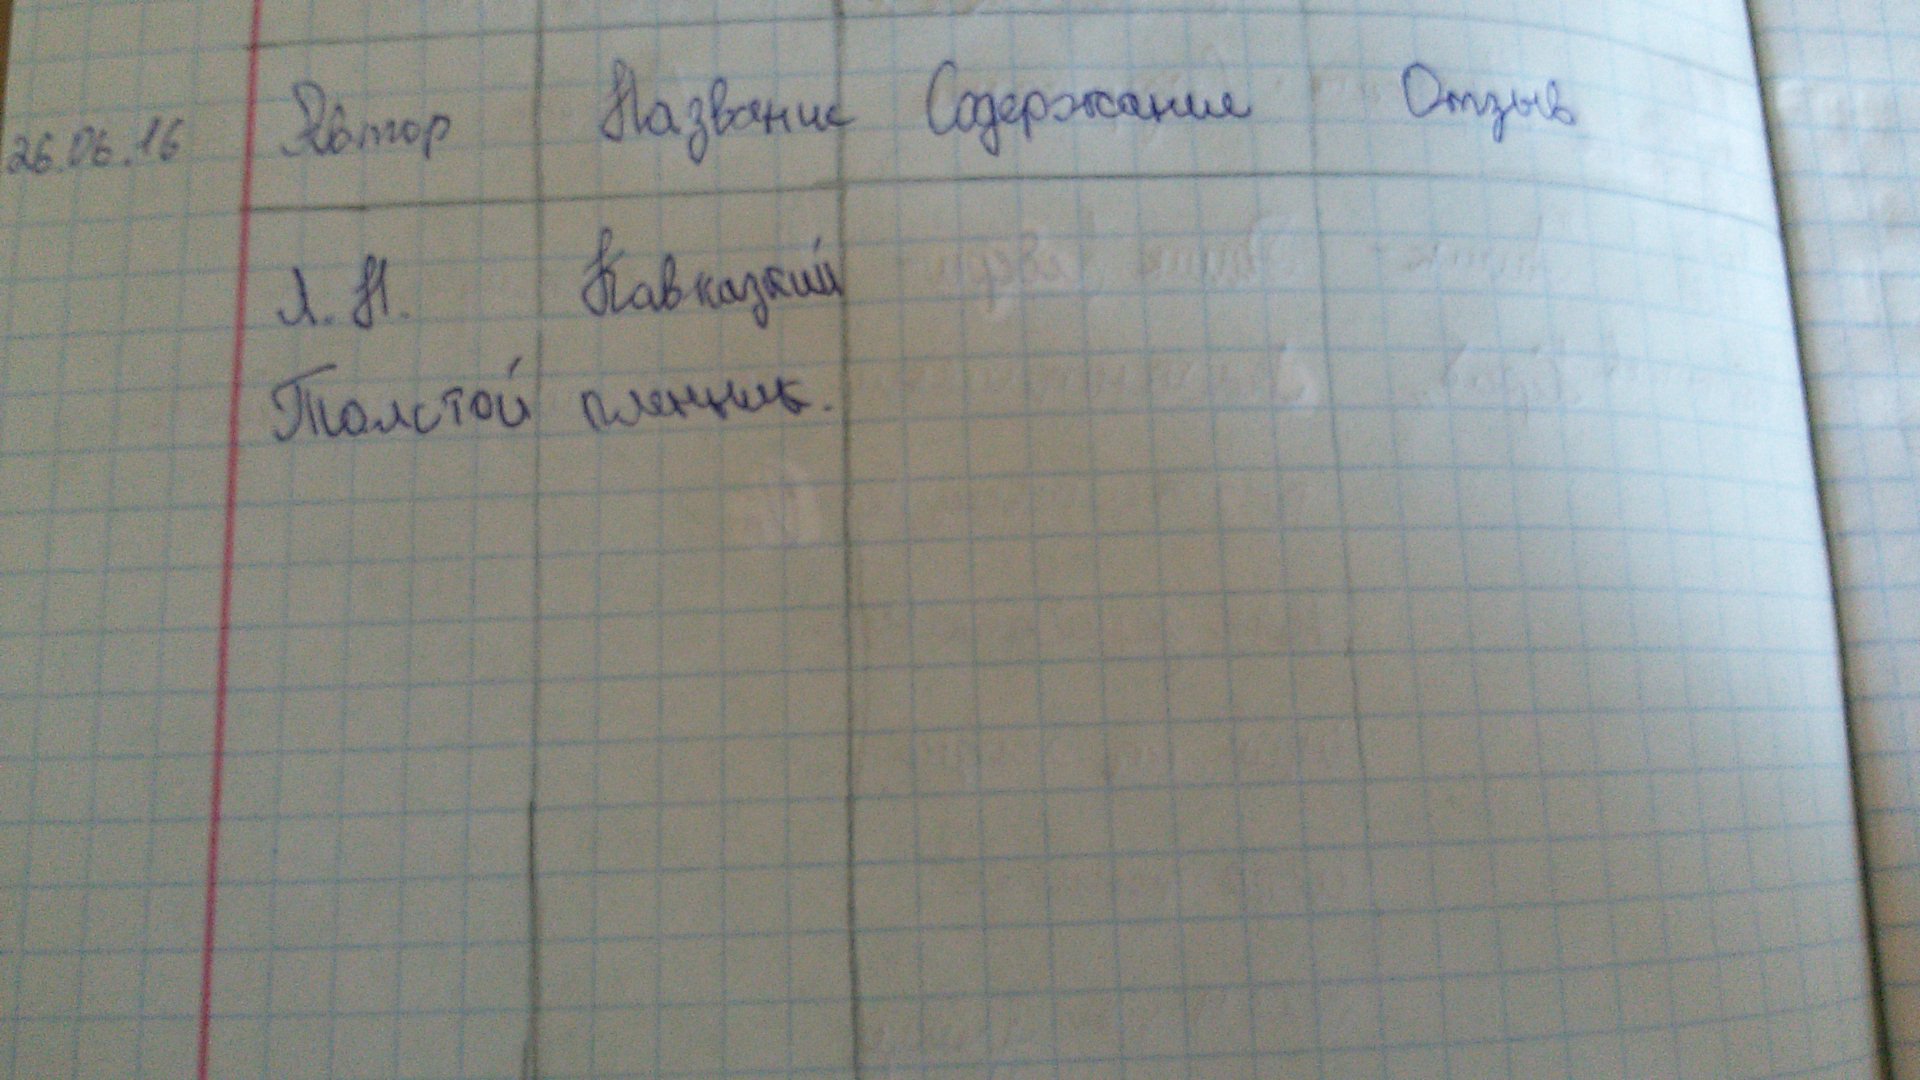 26.06.16 Автор Название Содержание Отзыв
Л. Н. Кавказкий
Толстой пленник.